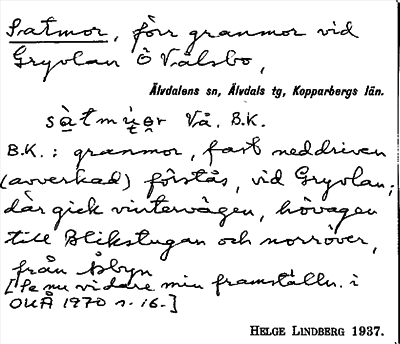 Satmor, förr granmor vid
Gryvlan Ö Vålsbo,
Älvdalens sn, Älvdals tg, Kopparbergs län.
Vå. B.K.
B.K.: granmor, fast neddriven
(avverkad) förstås, vid Gryvlan;
där gick vintervägen, hövagen
till Blikstugan och norröver,
från Åsbyn
[Se nu vidare min framställn. i
OUÅ 1970 s. 16.]
HELGE LINDBERG 1937.